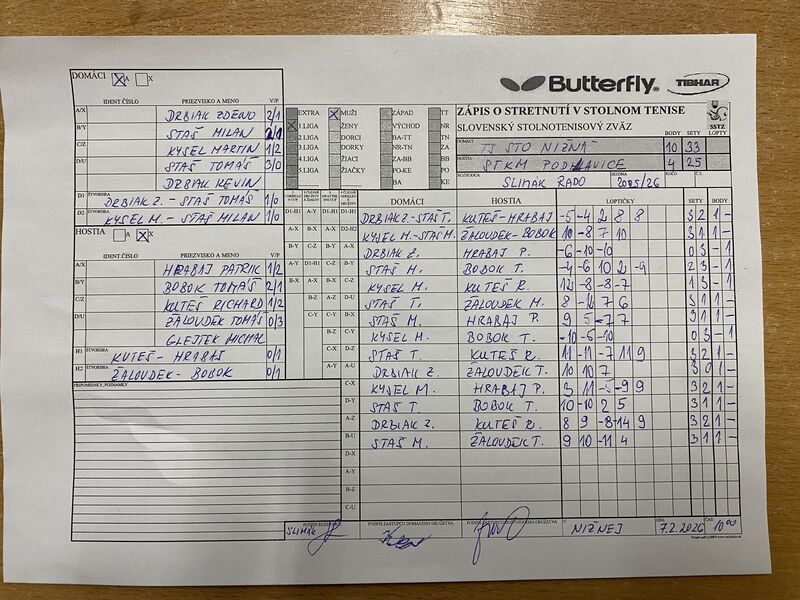 DOMÁCI X A X
Butterfly TIBHAR
IDENT ČÍSLO PRIEZVISKO A MENO V/P
A/X DRBIAK ZDENO 2/1
B/Y STAŠ MILAN 2/1
C/Z KYSEL MARTIN 1/2
D/U STAŠ TOMÁŠ 3/0
DRBIAK KEVIN
D1 ŠTVORHRA DRBIAK Z. - STAŠ TOMÁŠ 1/0
D2 ŠTVORHRA KYSEL M. - STAŠ MILAN 1/0
HOSTIA A X X
IDENT ČÍSLO PRIEZVISKO A MENO V/P
A/X HRABAJ PATRIK 1/2
B/Y BOBOK TOMÁŠ 2/1
C/Z KUTEŠ RICHARD 1/2
D/U ŽALOUDEK TOMÁŠ 0/3
GLEJTEK MICHAL
H1 ŠTVORHRA KUTEŠ - HRABAJ 0/1
H2 ŠTVORHRA ŽALOUDEK - BOBOK 0/1
PRIPOMIENKY, POZNÁMKY
EXTRA X MUŽI ZÁPAD TT
X 1.LIGA ŽENY VÝCHOD NR
2.LIGA DORCI BA-TT TN
3.LIGA DORKY NR-TN ZA
4.LIGA ŽIACI ZA-BB BB
5.LIGA ŽIAČKY PO-KE PO
BA KE
ZÁPIS O STRETNUTÍ V STOLNOM TENISE
SLOVENSKÝ STOLNOTENISOVÝ ZVÄZ
SSTZ
BODY SETY LOPTY
DOMÁCI TJ STO NIŽNÁ 10 33
HOSTIA STKM PODHLAVICE 4 25
ROZHODCA SLIMÁK RADO SEZÓNA 2025/26 KOLO Č.Z.
DOMÁCI HOSTIA LOPTIČKY SETY BODY
D1-H1 A-Y D1-H1 D1-H1 DRBIAK Z.-STAŠ T. KUTEŠ-HRABAJ -5 -4 2 8 8 3 2 1 -
A-X B-X A-X D2-H2 KYSEL M.-STAŠ M. ŽALOUDEK-BOBOK 10 -8 7 10 3 1 1 -
B-Y C-Z B-Y A-X DRBIAK Z. HRABAJ P. -6 -10 -10 0 3 - 1
A-Y D1-H1 C-Z B-Y STAŠ M. BOBOK T. -4 -6 10 2 -9 2 3 - 1
B-X A-X B-X C-Z KYSEL M. KUTEŠ R. 12 -8 -8 -7 1 3 - 1
B-Z A-Z D-U STAŠ T. ŽALOUDEK M. 8 -4 7 6 3 1 1 -
C-Y C-Y B-X STAŠ M. HRABAJ P. 9 5 -7 7 3 1 1 -
B-Z C-Y KYSEL M. BOBOK T. -10 -6 -10 0 3 - 1
C-X D-Z STAŠ T. KUTEŠ R. 11 -11 -7 11 9 3 2 1 -
A-Y A-U DRBIAK Z. ŽALOUDEK T. 10 10 7 3 0 1 -
C-X KYSEL M. HRABAJ P. 3 11 -5 -9 9 3 2 1 -
D-Y STAŠ T. BOBOK T. 10 -10 2 5 3 1 1 -
A-Z DRBIAK Z. KUTEŠ R. 8 9 -8 -14 9 3 2 1 -
B-U STAŠ M. ŽALOUDEK T. 9 10 -11 4 3 1 1 -
D-X
A-Y
B-Z
C-U
SLIMÁK PODPIS ZÁSTUPCU DOMÁCEHO DRUŽSTVA V NIŽNEJ DŇA 7.2.2026 ČAS 10 00